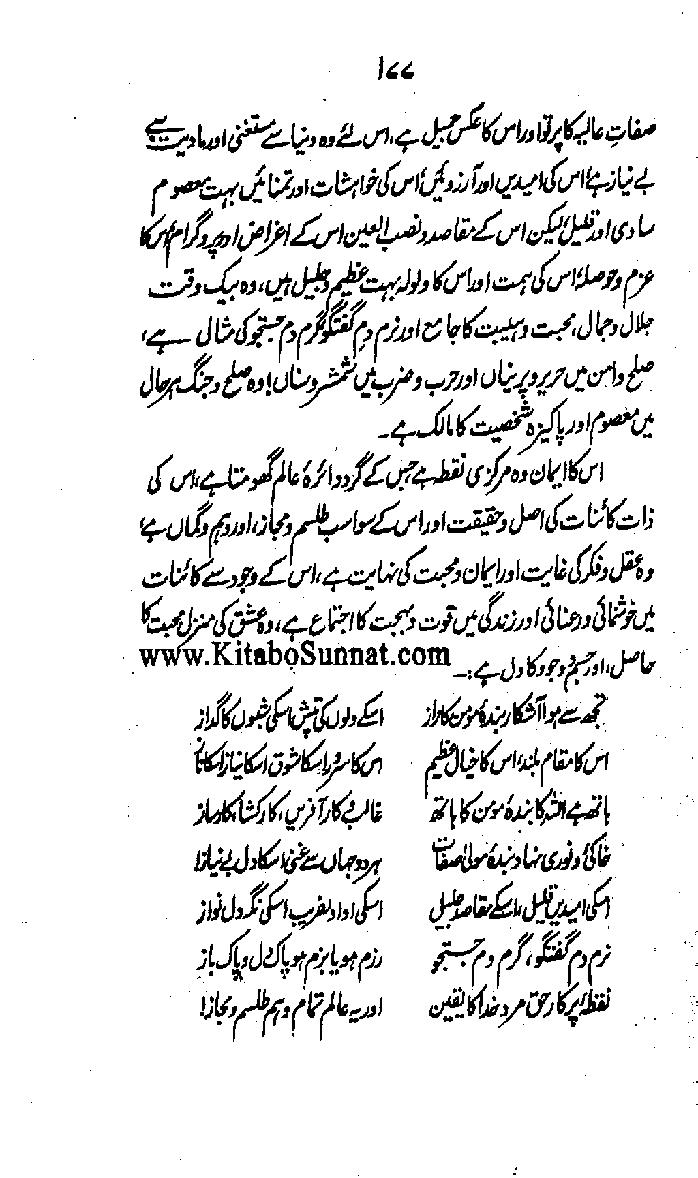 ۱۷۷
صفاتِ عالیہ کا پرتو اور اس کا عکسِ جمیل ہے، اس لئے وہ دنیا سے مستغنی اور مادیت سے
بے نیاز ہے، اس کی امیدیں اور آرزوئیں، اس کی خواہشات اور تمنائیں بہت معصوم
سادی اور قلیل لیکن اس کے مقاصد و نصب العین اس کے اغراض اور پروگرام، اس کا
عزم و حوصلہ، اس کی ہمت اور اس کا ولولہ بہت عظیم و جلیل ہیں، وہ بیک وقت
جلال و جمال، محبت و ہیبت کا جامع اور نرم دمِ گفتگو گرم دم جستجو کی مثال ہے،
صلح و امن میں حریر و پرنیاں اور حرب و ضرب میں شمشیر و سناں! وہ صلح و جنگ ہر حال
میں معصوم اور پاکیزہ شخصیت کا مالک ہے۔
اس کا ایمان وہ مرکزی نقطہ ہے جس کے گرد دائرۂ عالم گھومتا ہے، اس کی
ذات کائنات کی اصل و حقیقت اور اس کے سوا سب طلسم و مجاز، اور وہم و گماں ہے،
وہ عقل و فکر کی غایت اور ایمان و محبت کی نہایت ہے، اس کے وجود سے کائنات
میں خوشنمائی و رعنائی اور زندگی میں قوت و بہجت کا اجتماع ہے، وہ عشق کی منزل محبت کا
حاصل، اور جسم وجود کا دل ہے:۔
www.KitaboSunnat.com
تجھ سے ہوا آشکار بندۂ مومن کا راز اسکے دلوں کی تپش اسکی شبوں کا گداز
اس کا مقام بلند، اس کا خیال عظیم اس کا سرور اسکا شوق اسکا نیاز اسکا ناز
ہاتھ ہے اللہ کا بندۂ مومن کا ہاتھ غالب و کار آفریں، کارکشا، کارساز
خاکی و نوری نہاد بندۂ مولیٰ صفات ہر دو جہاں سے غنی اسکا دل بے نیاز!
اسکی امیدیں قلیل، اسکے مقاصد جلیل اسکی ادا دلفریب اسکی نگہ دل نواز
نرم دم گفتگو، گرم دم جستجو رزم ہو یا بزم ہو پاک دل و پاک باز
نقطۂ پرکارِ حق مردِ خدا کا یقین اور یہ عالم تمام وہم طلسم و مجاز!